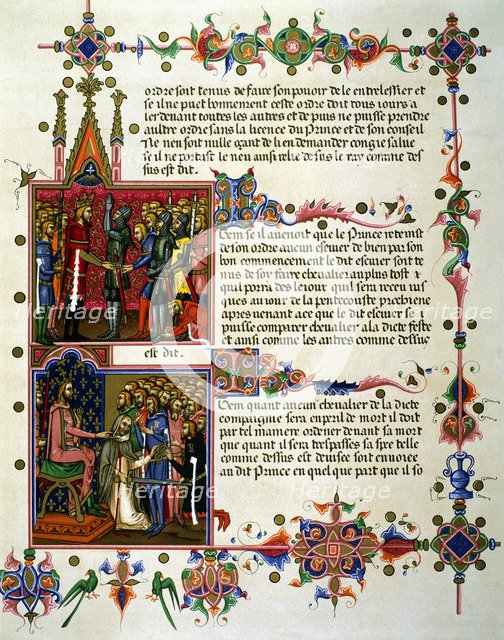 ordre soit tenus de faire son pouoir de le entrelessier et
se il ne puet bonnement ceste ordre doit tous iours a
ler deuant toutes les autres et de puis ne puisse prendre
aultre ordre sans la licence du Prince et de son conseil
Ne nen soit mille quant de lien demander congie salue
se il ne portast le neu ausi relie desus le ray comme des
sus est dit.
Item se il auenoit que le Prince retenist
de son ordre aucun escuer de bien par son
bon commencement le dit escuer soit te
nus de soy faire cheualier au plus tost
qui porra des le iour quil sera receu ius
ques au iour de la pentecouste prochiene
apres venant ace que le dit escuer si
puisse comparer cheualier a la dicte feste
et ainsi comme les autres comme dessus
est dit.
Item quant aucun cheualier de la dicte
compaignie sera en peril de mort il doit
par tel maniere ordener deuant sa mort
que quant il sera trespasses sa spee telle
comme dessus est deuisee soit enuoiee
au dit Prince en quel que part que il so
Heritage
Images